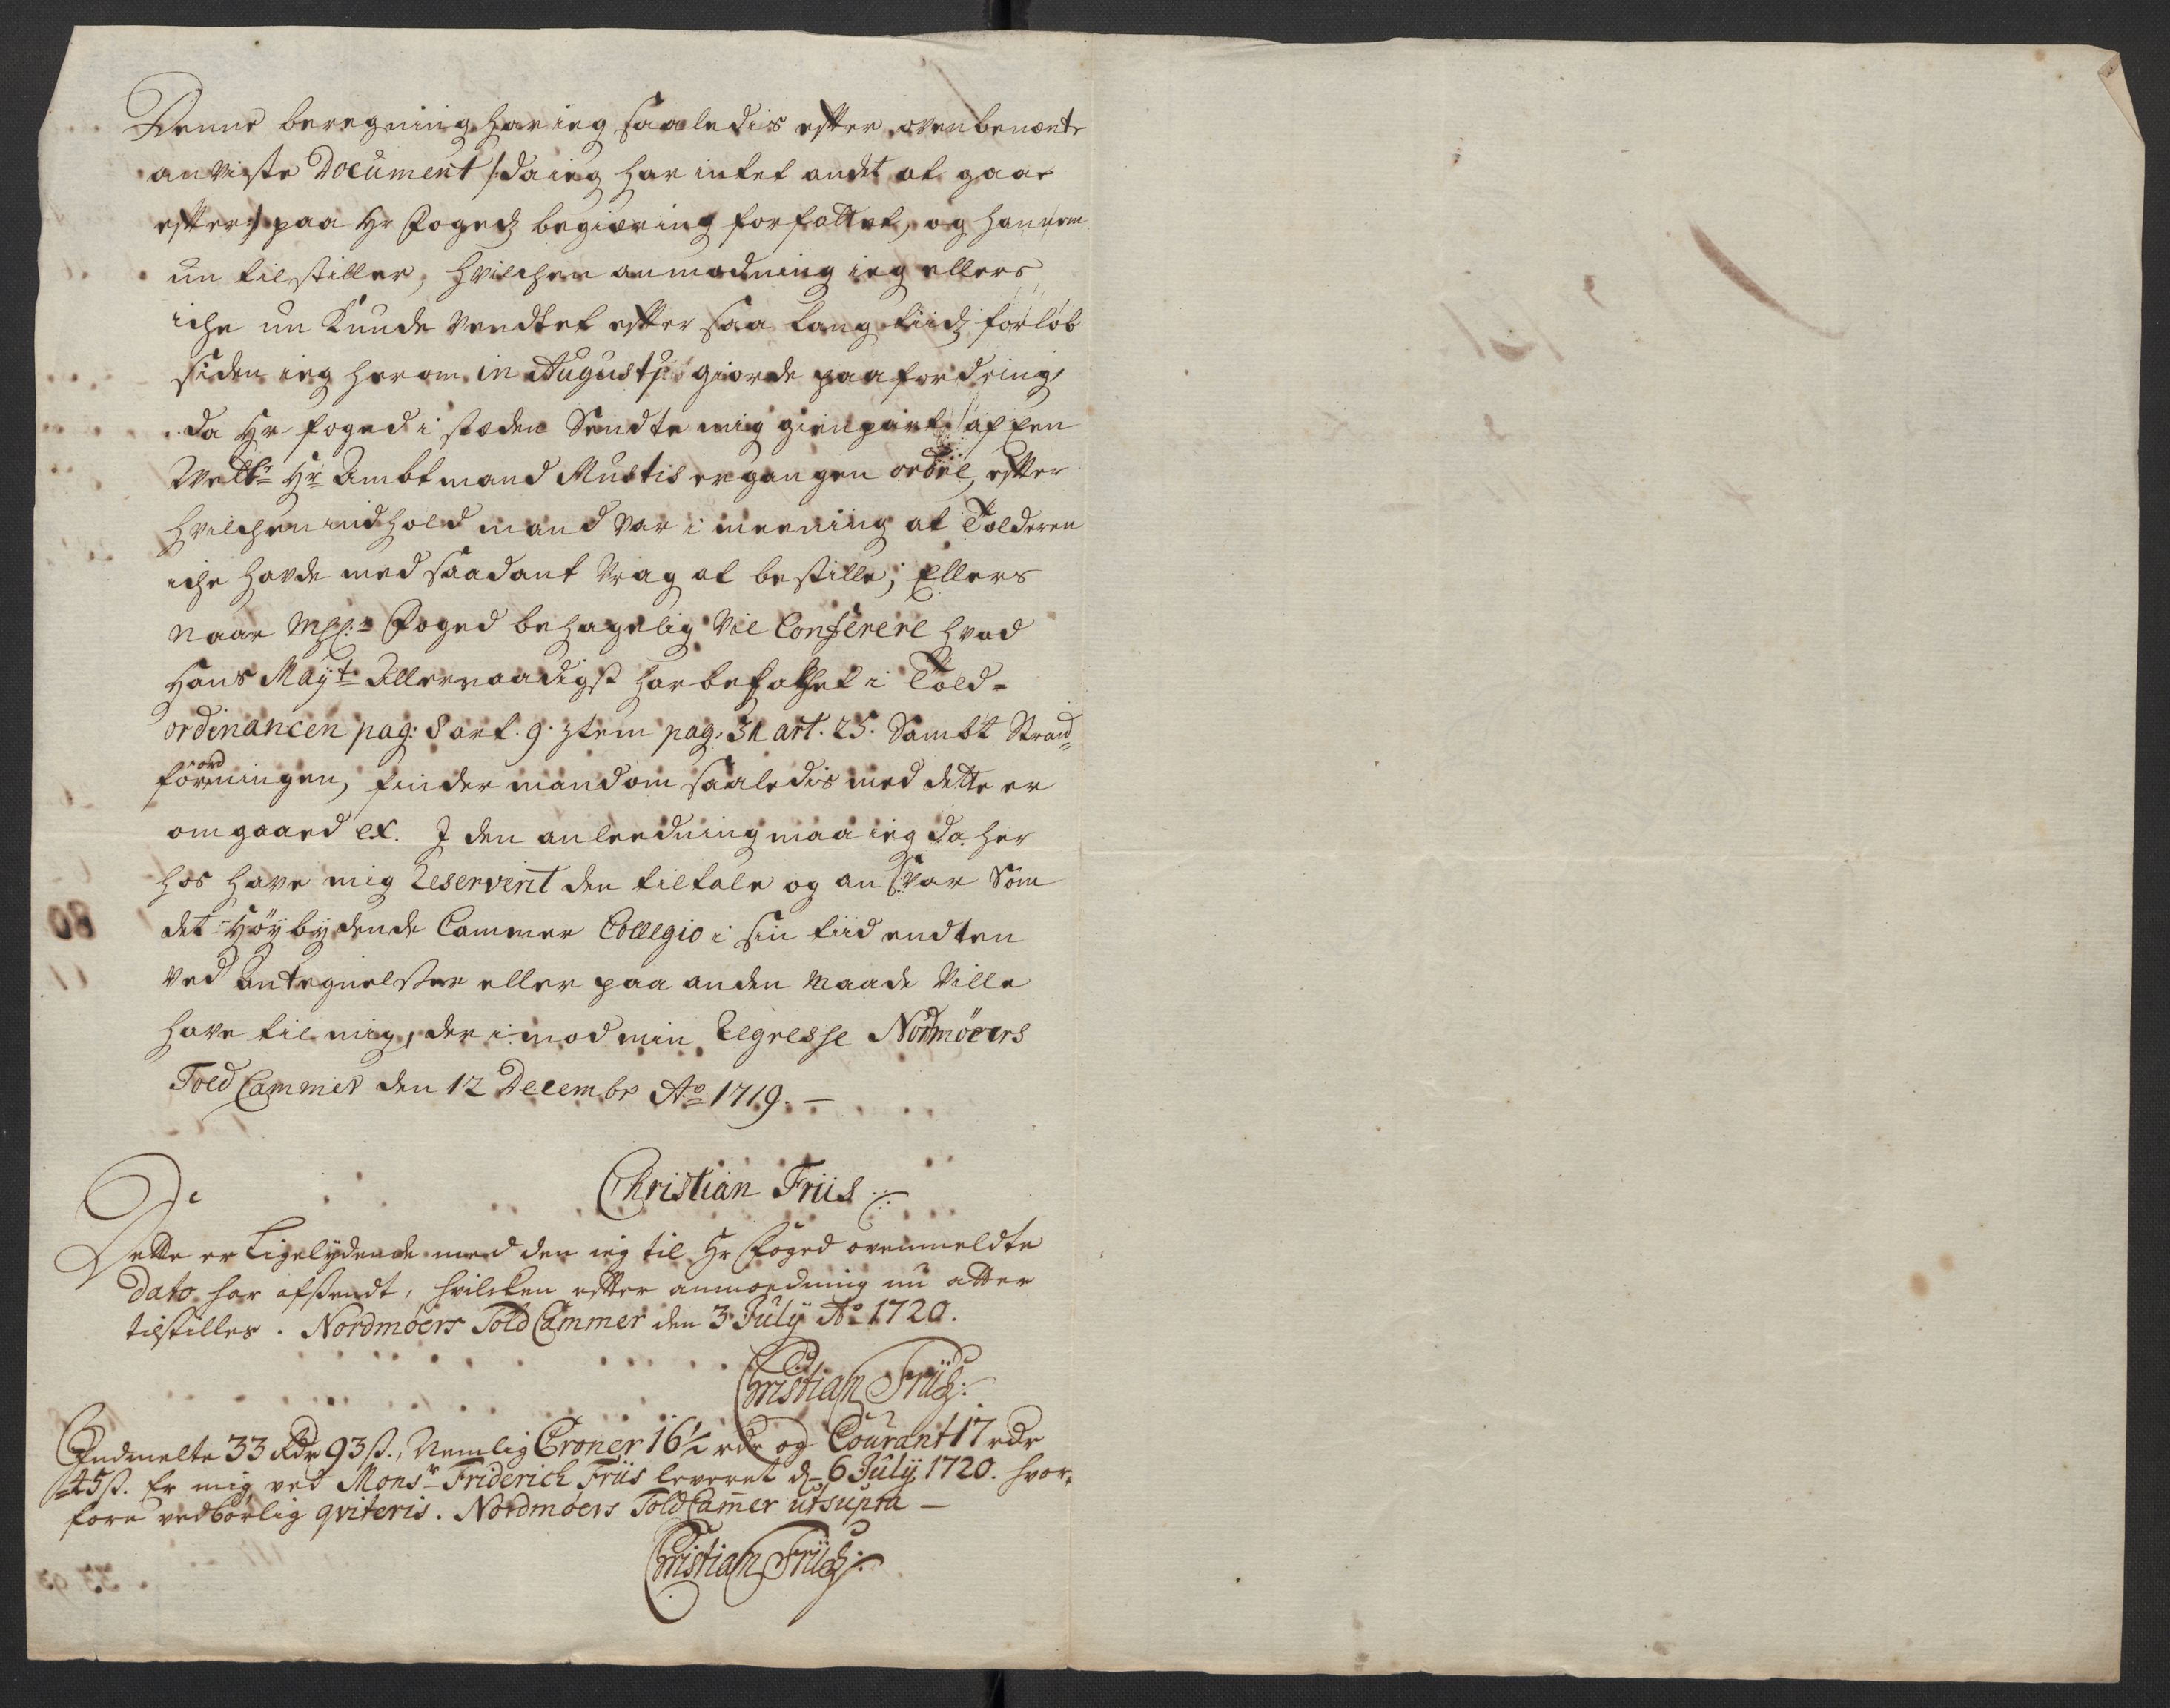 Denne beregning har ieg saaledis efter ovenbenænte
anviste Document /: da ieg har intet andet at gaae
efter :/ paa Hr Fogedz begiæring forfattet, og hannem
nu tilstiller, hvilchen anmodning ieg ellers
iche nu Kunde Vendtet efter saa lang tiidz forløb
siden ieg herom in Augustj giorde paafordring,
da Hr foged i stæden Sendte mig gienpart af een
Welbr Hr Ambtmand Mustis ergangen ordre, efter
hvilchen indhold mand var i meening at Tolderen
iche havde med saadant Vrag at bestille; Ellers
Naar Msr Foged behagelig Vil Conferere hvad
Hans Mayt Allernaadigst har befahlet i Told-
ordinancen pag: 8 art. 9. Item pag: 31 art. 25. Sambt Strand
forordningen, finder mand om saaledis med dette er
omgaaed ex. I den anleedning maa ieg da her
hos have mig Reserverit den tiltale og ansvar Som
det Høybydende Cammer Collegio i sin tiid endten
Ved Antegnelser eller paa anden Maade Ville
have til mig, der imod min Regresse Nordmøers
Told Cammer den 12 Decembr Ao 1719. —
Christian Friis
Dette er Ligelydende med den ieg til Hr Foged ovenmeldte
Dato har afsendt, hvilcken efter anmodning nu atter
tilstilles. Nordmøers Told Cammer den 3 July Ao 1720.
Christian Friis:
Indmelte 33 Rdr 93 s., Nemlig Croner 16½ rdr og Courant 17 rdr
45 s. Er mig ved Monsr Friderich Friis leveret d. 6 July 1720. hvor-
fore vedbørlig qviteris. Nordmøers Told Camer ut supra —
Christian Friis: